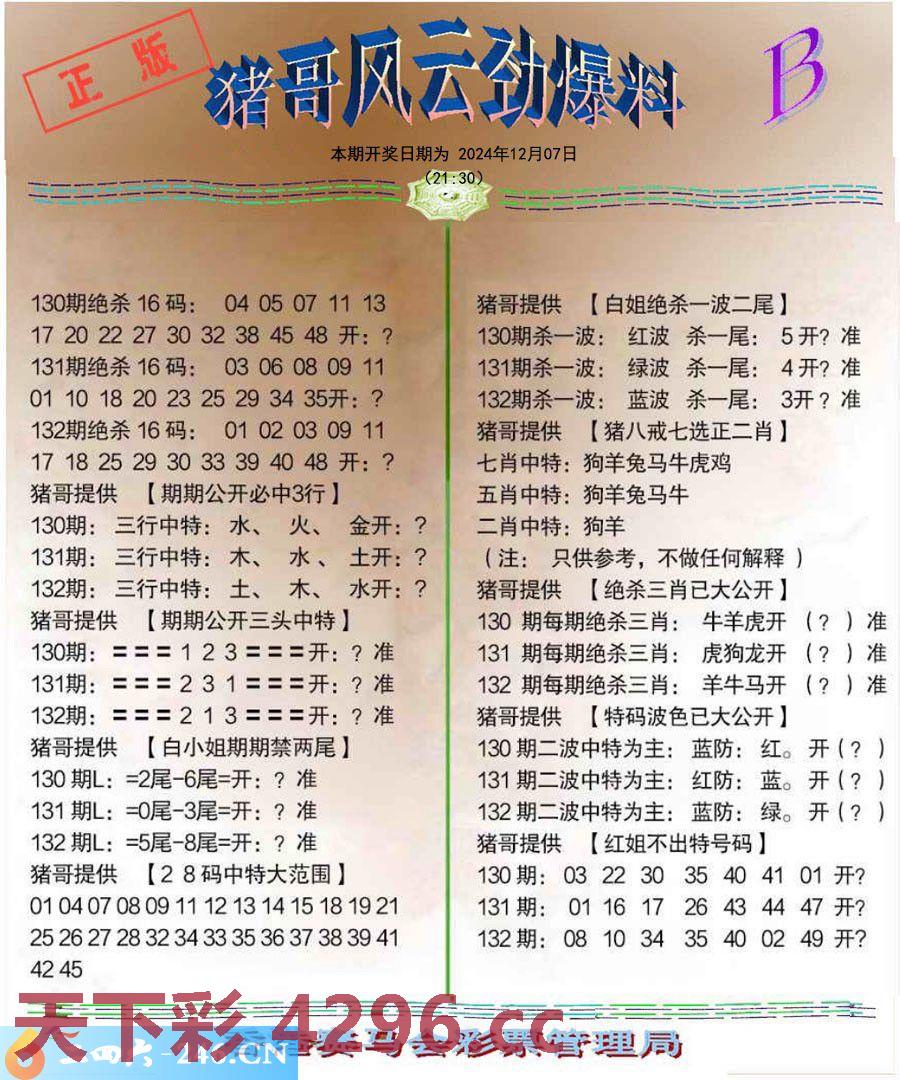 正版
猪哥风云劲爆料
B
本期开奖日期为 2024年12月07日
(21:30)
130期绝杀 16 码： 04 05 07 11 13
17 20 22 27 30 32 38 45 48 开：?
131期绝杀 16 码： 03 06 08 09 11
01 10 18 20 23 25 29 34 35开：?
132期绝杀 16 码： 01 02 03 09 11
17 18 25 29 30 33 39 40 48 开：?
猪哥提供 【期期公开必中3行】
130期： 三行中特： 水、 火、 金开：?
131期： 三行中特： 木、 水、 土开：?
132期： 三行中特： 土、 木、 水开：?
猪哥提供 【期期公开三头中特】
130期：=== 1 2 3 ===开：? 准
131期：=== 2 3 1 ===开：? 准
132期：=== 2 1 3 ===开：? 准
猪哥提供 【白小姐期期禁两尾】
130 期L：=2尾-6尾=开：? 准
131 期L：=0尾-3尾=开：? 准
132 期L：=5尾-8尾=开：? 准
猪哥提供 【2 8 码中特大范围】
01 04 07 08 09 11 12 13 14 15 18 19 21
25 26 27 28 32 34 33 35 36 37 38 39 41
42 45
猪哥提供 【白姐绝杀一波二尾】
130期杀一波： 红波 杀一尾： 5 开? 准
131期杀一波： 绿波 杀一尾： 4 开? 准
132期杀一波： 蓝波 杀一尾： 3开 ? 准
猪哥提供 【猪八戒七选正二肖】
七肖中特：狗羊兔马牛虎鸡
五肖中特：狗羊兔马牛
二肖中特：狗羊
（注： 只供参考，不做任何解释 ）
猪哥提供 【绝杀三肖已大公开】
130 期每期绝杀三肖： 牛羊虎开 （? ）准
131 期每期绝杀三肖： 虎狗龙开 （? ）准
132 期每期绝杀三肖： 羊牛马开 （? ）准
猪哥提供 【特码波色已大公开】
130 期二波中特为主： 蓝防： 红。 开（? ）
131 期二波中特为主： 红防： 蓝。 开（? ）
132 期二波中特为主： 蓝防： 绿。 开（? ）
猪哥提供 【红姐不出特号码】
130 期： 03 22 30 35 40 41 01 开?
131 期： 01 16 17 26 43 44 47 开?
132 期： 08 10 34 35 40 02 49 开?
天下彩 4296.cc
二四六-246.CN
马会彩票管理局